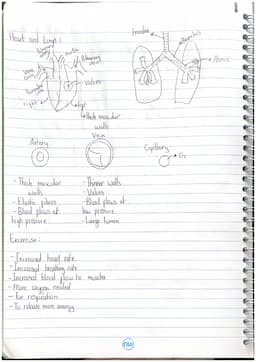 Heart and Lungs:
trachea
Bronchus
aorta
Pulmonary
vein
Vena
cava
Alveoli
valves
right
left
Thick muscular
walls
Artery
Vein
Capillary
O₂
- Thick muscular
walls
- Elastic fibres
- Blood flows at
high pressure
- Thinner walls
- Valves
- Blood flows at
low pressure
- Large lumen
Exercise:
- Increased heart rate
- Increased breathing rate
- Increased blood flow to muscles
- More oxygen needed
- For respiration
- To release more energy
nu